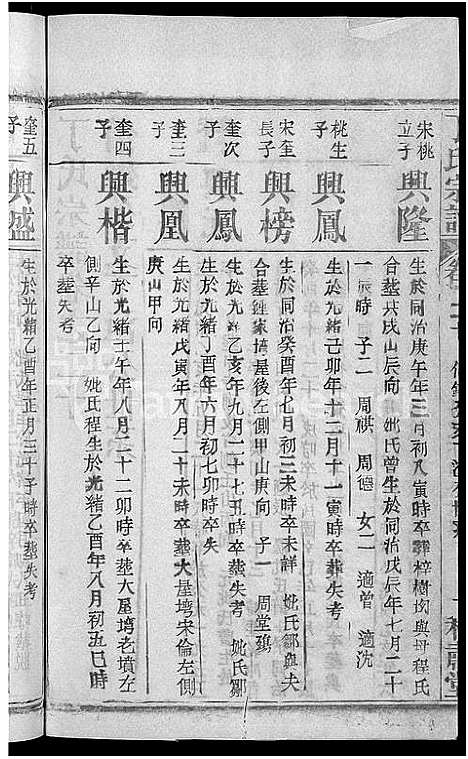 丁氏宗譜
宋桃
立子
興隆
生於同治庚午年三月初八寅時卒葬梓樹坳與母程氏
合墓其戌山辰向 妣氏曾生於同治戊辰年七月二十
一辰時 子二 周祺 周德 女二 適曾 適沈
桃生
子
興鳳
生於光緒己卯年十二月十一寅時卒葬失考
宋奎
長子
興榜
生於同治癸酉年七月初三未時卒未詳 妣氏鄒與夫
合墓鍾家塆屋後左側甲山庚向 子一 周堂鵎
奎次
子
興鳳
生於光緒乙亥年九月二十七丑時卒葬失考 妣氏鄒
生於光緒丁酉年六月初七卯時卒失
奎三
子
興凰
生於光緒戊寅年八月二十未時卒葬大屋塆宋倫左側
庚山甲向
奎四
子
興楷
生於光緒壬午年八月二十二卯時卒葬大屋塆老墳左
側辛山乙向 妣氏程生於光緒乙酉年八月初五巳時
卒葬失考
奎五
子
興盛
生於光緒乙酉年正月三十子時卒葬失考